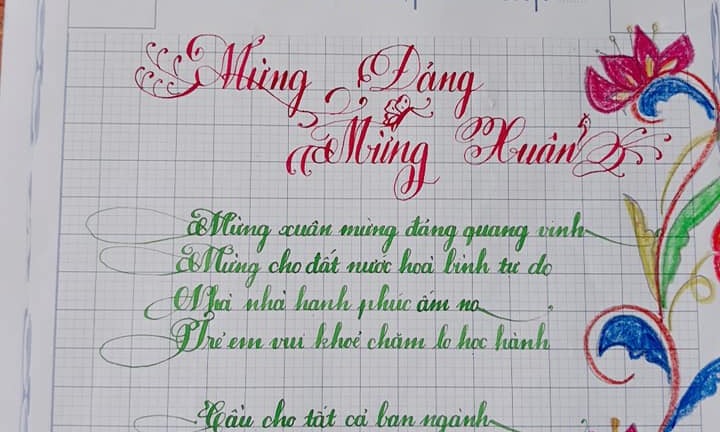 Mừng Đảng
Mừng Xuân
Mừng xuân mừng đảng quang vinh
Mừng cho đất nước hoà bình tự do
Nhà nhà hạnh phúc ấm no
Trẻ em vui khoẻ chăm lo học hành
Cầu cho tất cả ban ngành